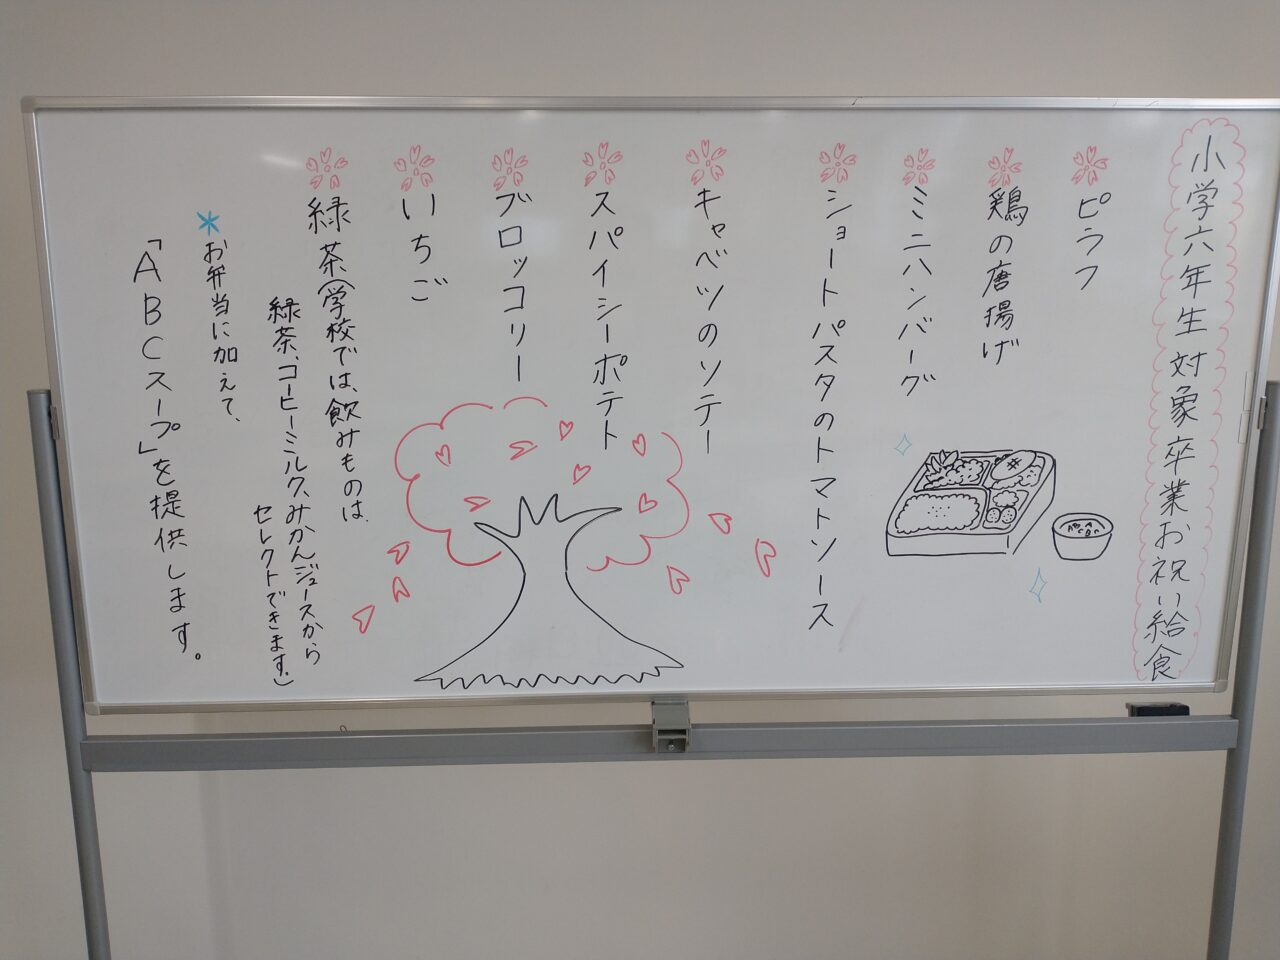 小学六年生対象卒業お祝い給食
ピラフ
鶏の唐揚げ
ミニハンバーグ
ショートパスタのトマトソース
キャベツのソテー
スパイシーポテト
ブロッコリー
いちご
緑茶(学校では、飲みものは、
緑茶、コーヒーミルク、みかんジュースから
セレクトできます。)
*お弁当に加えて、
「ABCスープ」を提供します。